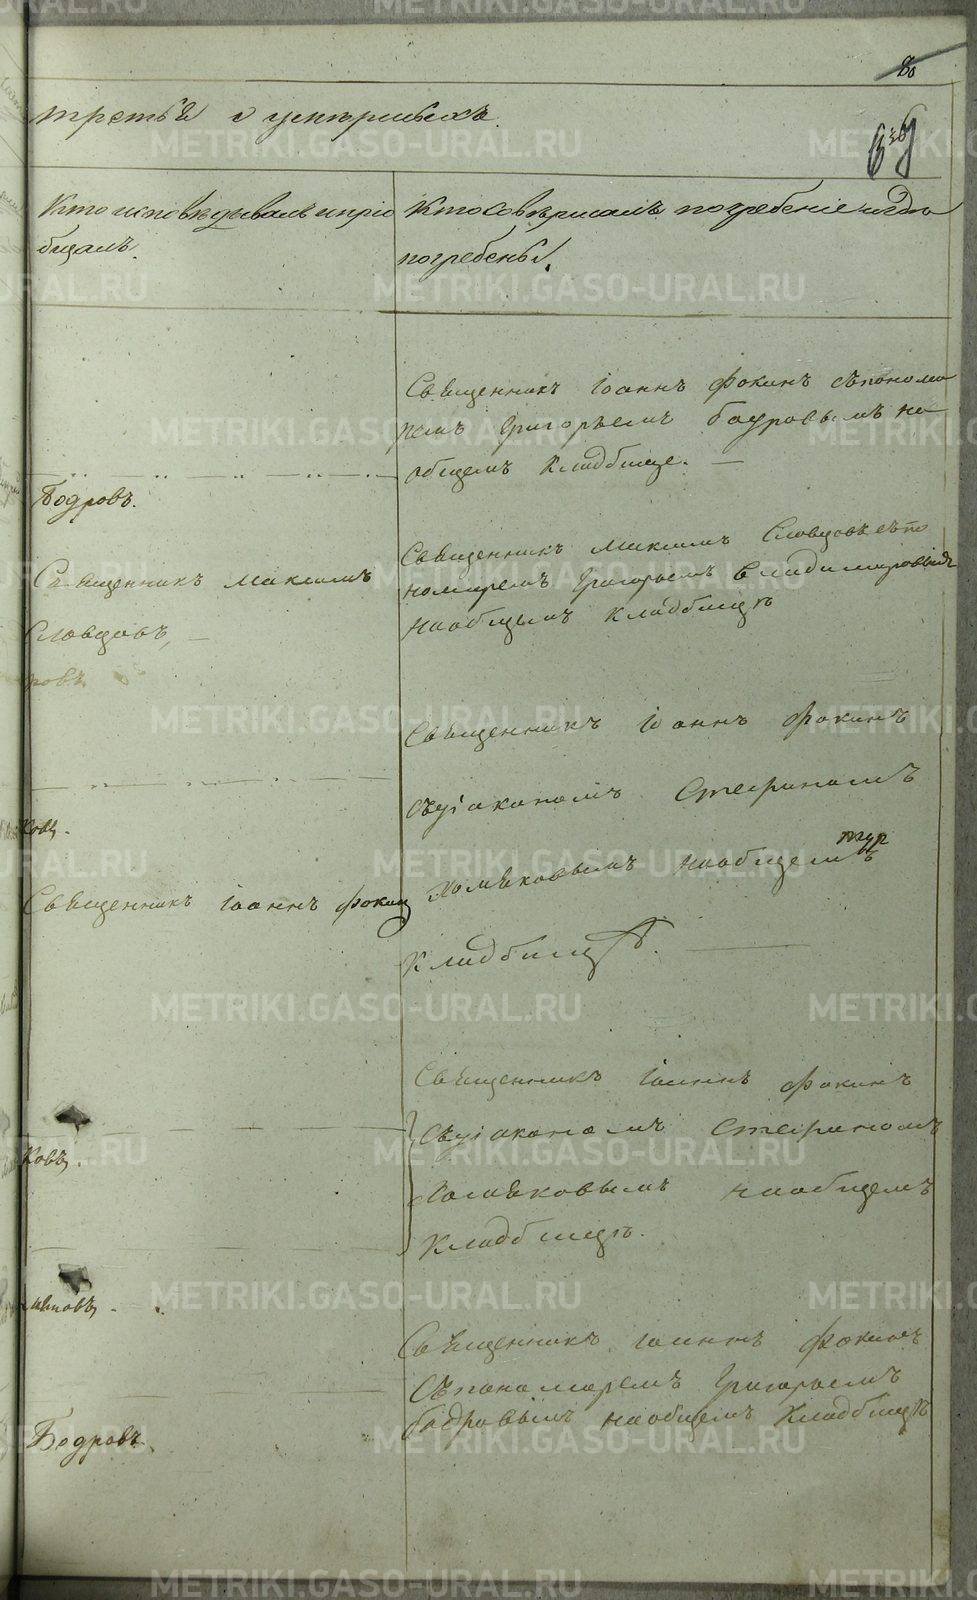 80
третья о умершихъ
Кто исповѣдывалъ и прiо
бщалъ.
Кто совершалъ погребенiе и гдѣ
погребены.
Священникъ Iоаннъ Фокинъ съ понома
ремъ Григорьемъ Бодровымъ на
общемъ кладбище.
Бодровъ.
Священникъ Максимъ
Словцовъ,
ровъ
Священникъ Максимъ Словцовъ съ по
номаремъ Григорьемъ Владимировымъ
на общемъ кладбищѣ
Священникъ Iоаннъ Фокинъ
съ дiакономъ Стефаномъ
Хомяковымъ на общемъ
кладбищѣ.
ковъ.
Священникъ Iоаннъ Фокинъ
Священникъ Iоаннъ Фокинъ
съ дiакономъ Стефаномъ
Хомяковымъ на общемъ
кладбищѣ.
ковъ.
Священникъ Iоаннъ Фокинъ
съ пономаремъ Григорьемъ
Бодровымъ на общемъ кладбищѣ
Бодровъ.
METRIKI.GASO-URAL.RU